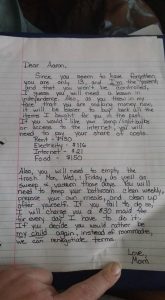 Dear Aaron,
Since you seem to have forgotten
you are only 13, and I'm the parent,
and that you won't be controlled,
I guess you will need a lesson in
independence. Also, as you threw in my
face that you are making money now,
it will be easier to buy back all the
items I bought for you in the past.
If you would like your lamp/lightbulbs
or access to the internet, you will
need to pay your share of costs:
Rent - $430
Electricity - $116
Internet - $21
Food - $150
Also, you will need to empty the
trash Mon, Wed, & Friday, as well as
sweep & vacuum those days. You will
need to keep your bathroom clean weekly,
prepare your own meals, and clean up
after yourself. If you fail to do so,
I will charge you a $30 maid fee
for every day I have to do it.
If you decide you would rather be
my child again, instead of roommate,
we can renegotiate terms.
Love,
Mom